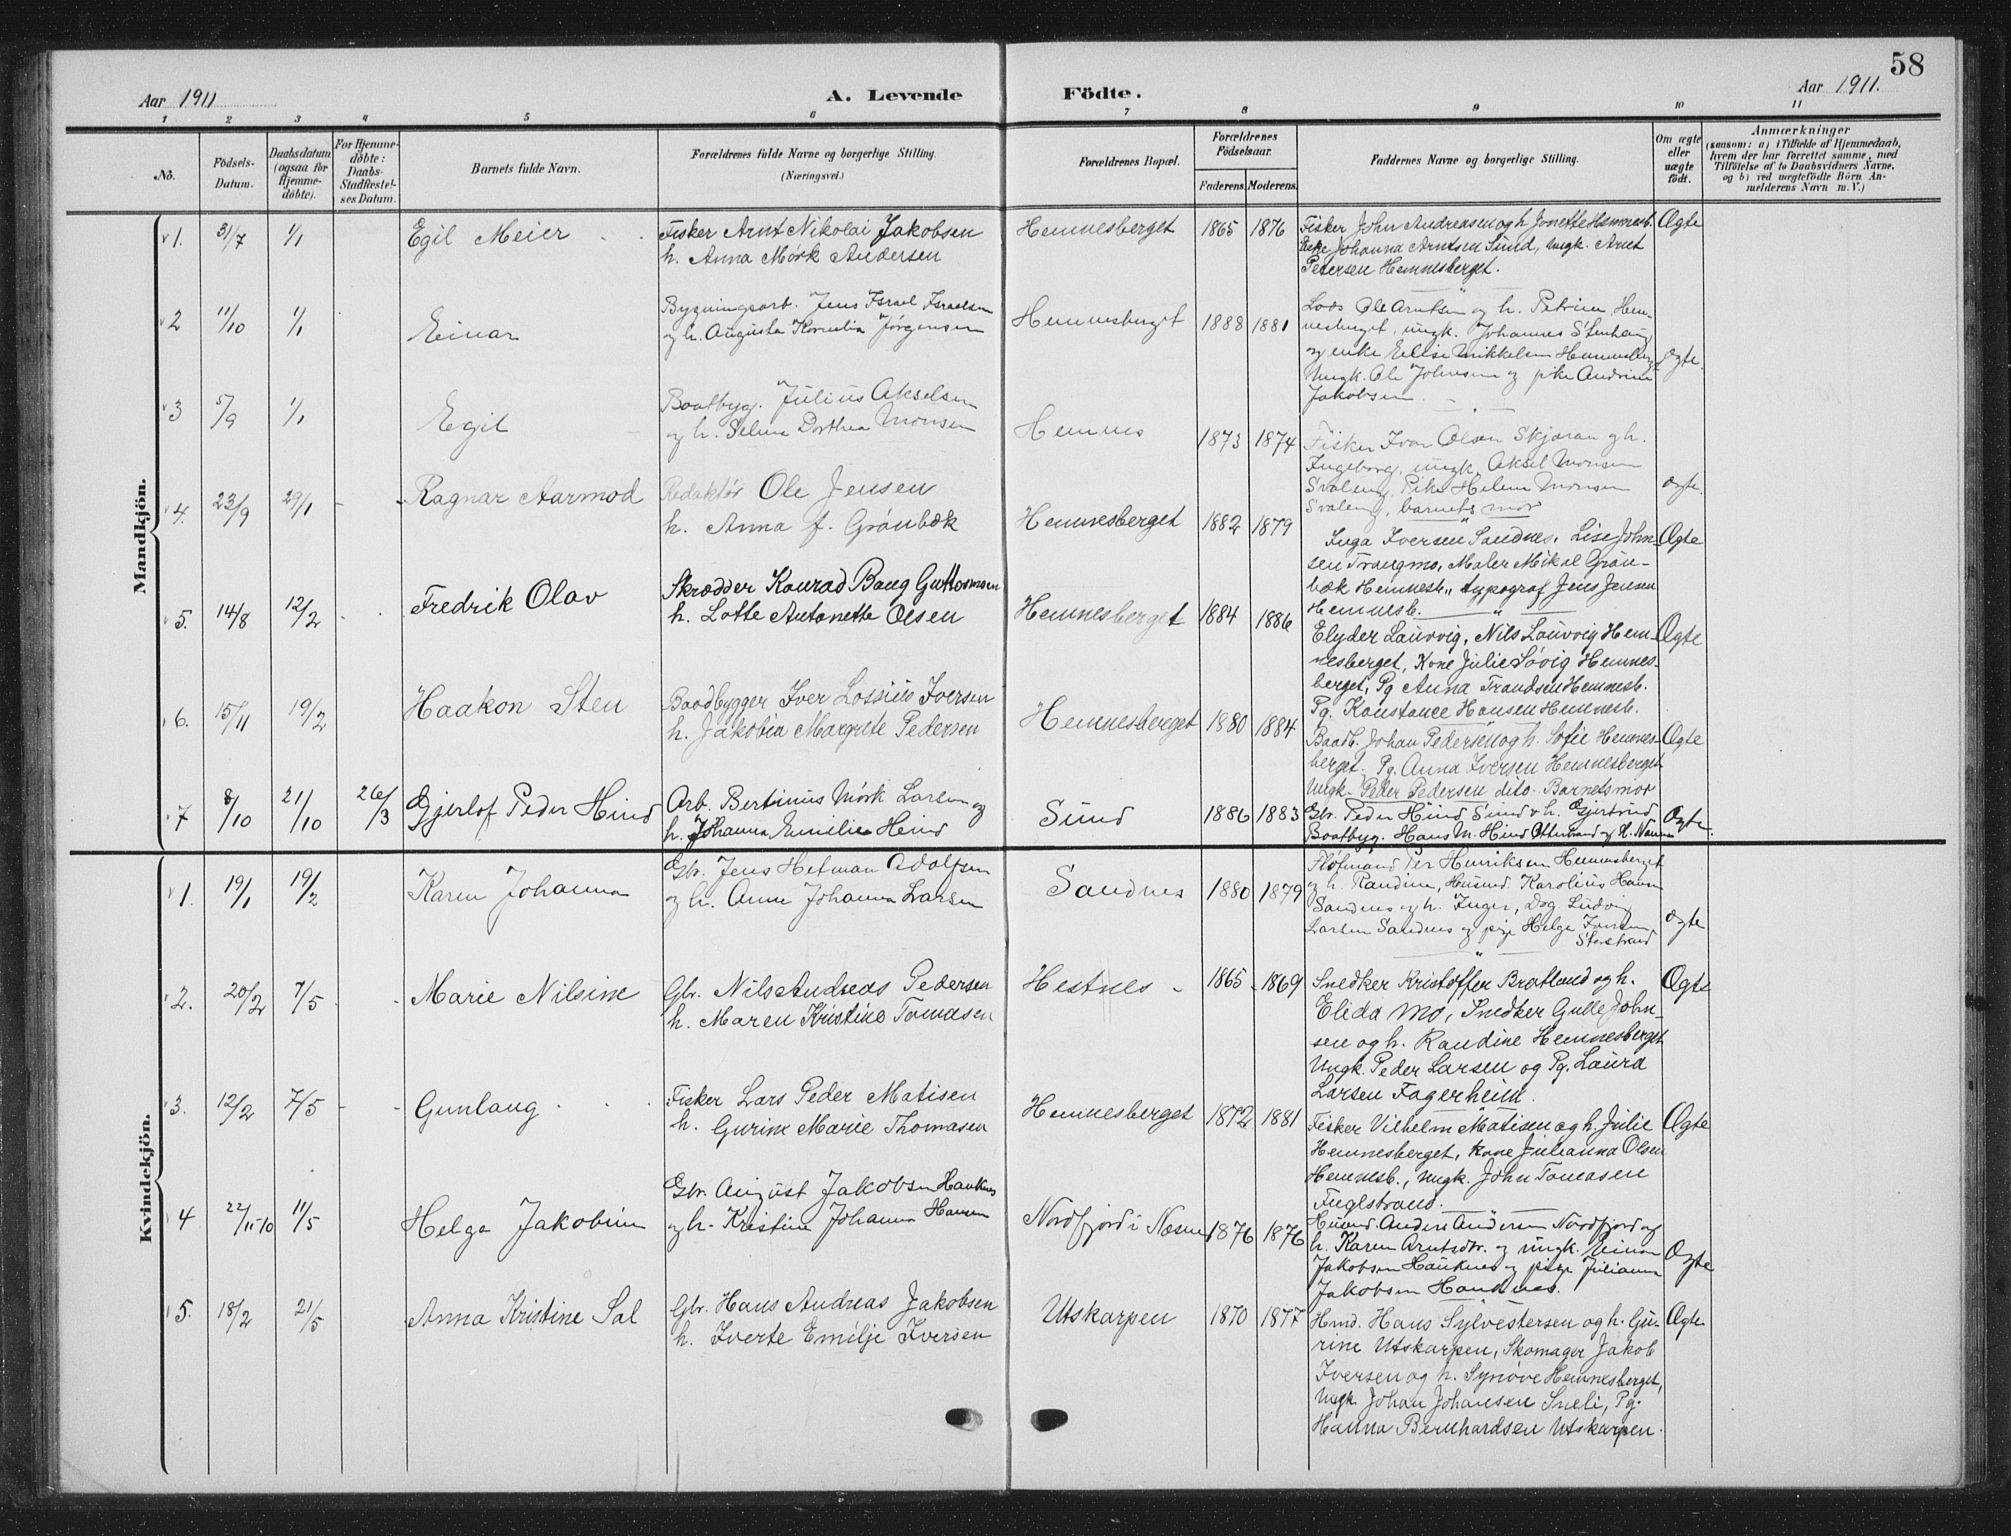 58
Aar 1911 A. Levende Födte. Aar 1911.
1 2 3 4 5 6 7 8 9 10 11
No. Födsels-Datum. Daabsdatum (ogsaa for Hjemme-döbte). For Hjemme-döbte: Daabs-Stadfæstel-ses Datum. Barnets fulde Navn. Forældrenes fulde Navne og borgerlige Stilling. (Næringsvei.) Forældrenes Bopæl. Forældrenes Födselsaar. Faderens. Moderens. Faddernes Navne og borgerlige Stilling. Om ægte eller uægte födt. Anmærkninger (saasom: a) i Tilfælde af Hjemmedaab, hvem der har forrettet samme, med Tilföielse af to Daabsvidners Navne, og b) ved uægtefödte Börn An-melderens Navn m. V.)
Mandkjön.
1. 31/7 1/1 Egil Meier Fisker Arnt Nikolai Jakobsen Hemnesberget 1865 1876 Fisker John Andreasen og h. Jonette Hemnesb. Ægte
h. Anna Mørk Andersen Enke Johanna Arntsen Sund, ungk. Arnt
Petersen Hemnesberget.
2 11/10 1/1 Einar Bygningsarb. Jens Israel Israelsen Hemnesberget 1888 1881 Lods Ole Arntsen og h. Petrine, Hem-
og h. Augusta Kornelia Jørgensen nesberget, ungk. Johannes Stenhaug
og enke Elise Mikkelsen Hemnesberg Ægte.
Ungk. Ole Johnsen og pike Andrine
Jakobsen
3 5/9 1/1 Egil Baatbyg. Julius Akselsen Hemnes 1873 1874 Fisker Ivar Olsen Skjæran og h.
og h. Selma Dorthea Monsen Ingeborg, ungk. Aksel Monsen
Svaleng, Pike Helene Monsen ægte.
Svaleng, barnets mor
4. 23/9 29/1 Ragnar Aarmod Redaktør Ole Jensen Hemnesberget 1882 1879 Inga Iversen Sandnes, Lise John- Ægte
h. Anna f. Grønbæk sen Trangmo, Maler Mikal Grøn-
bæk Hemnesb., typograf Jens Jensen
Hemnesb.
5. 14/8 12/2 Fredrik Olav Skrædder Konrad Bang Guttormsen Hemnesberget 1884 1886 Elyder Lauvvig, Nils Lauvvig Hem- Ægte
h. Lotte Antonette Olsen nesberget, Kone Julie Søvig Hemnes-
berget, Pg Anna Trandsen Hemnesb.
Pg. Konstance Hansen Hemnesb.
6. 15/11 19/2 Haakon Sten Baadbygger Iver Lossius Iversen Hemnesberget 1880 1884 Baadb. Johan Pedersen og h. Sofie Hemnes- Ægte
h. Jakobia Margrete Pedersen berget. Pg. Anna Iversen Hemnesberget
Ungk. Peter Pedersen dito. Barnetsmor
7 8/10 21/10 26/3 Gjerlof Peder Hind Arb. Bertinus Mørk Larsen og Sund 1886 1883 Gbr. Peder Hind Sund & h. Gjertrud Ægte.
h. Johanna Emilie Heind Baatbyg. Hans M. Hind
Kvindekjön.
1. 19/1 19/2 Karen Johanna Gbr. Jens Hetman Adolfsen Sandnes 1880 1879 Fløtmand Per Henriksen Hemnesberget
og h. Anne Johanna Larsen og h. Randine, Husmd. Karolius Hansen
Sandnes og h. Inger, Dag. Ludvig
Larsen Sandnes og pige Helga Iversen ægte
Storstrand
2. 20/2 7/5 Marie Nilsine Gbr. Nils Andreas Pedersen Hestnes 1865 1869 Snedker Kristoffer Bratland og h. Ægte
h. Maren Kristine Tomasen Elida Mo, Snedker Gulle John-
sen og h. Randine Hemnesberget
Ungk. Peder Larsen og Pg. Laura
Larsen Fagerheim.
3. 12/2 7/5 Gunlaug Fisker Lars Peder Matisen Hemnesberget 1872 1881 Fisker Vilhelm Matisen og h. Julie Ægte
h. Gurine Marie Thomasen Hemnesberget, kone Julianna Olsen
Hemnesb., ungk. John Tomasen
Fuglstrand.
4 22/11-10 11/5 Helga Jakobine Gbr. August Jakobsen Hauknes Nordfjord i Næsne 1876 1876 Husmd. Anders Andersen Nordfjord og
og h. Kristine Johanna Hansen h. Karen Arntsdtr. og ungk. Einar Ægte
Jakobsen Hauknes og pige Julianna
Jakobsen Hauknes.
5. 18/2 21/5 Anna Kristine Sal Gbr. Hans Andreas Jakobsen Utskarpen 1870 1877 Hmd. Hans Sylvestersen og h. Gu- Ægte
h. Iverte Emilje Iversen rine Utskarpen, Skomager Jakob
Iversen og h. Synøve Hemnesberget,
Ungk. Johan Johansen Sneli, Pg.
Hanna Bernhardsen Utskarpen.